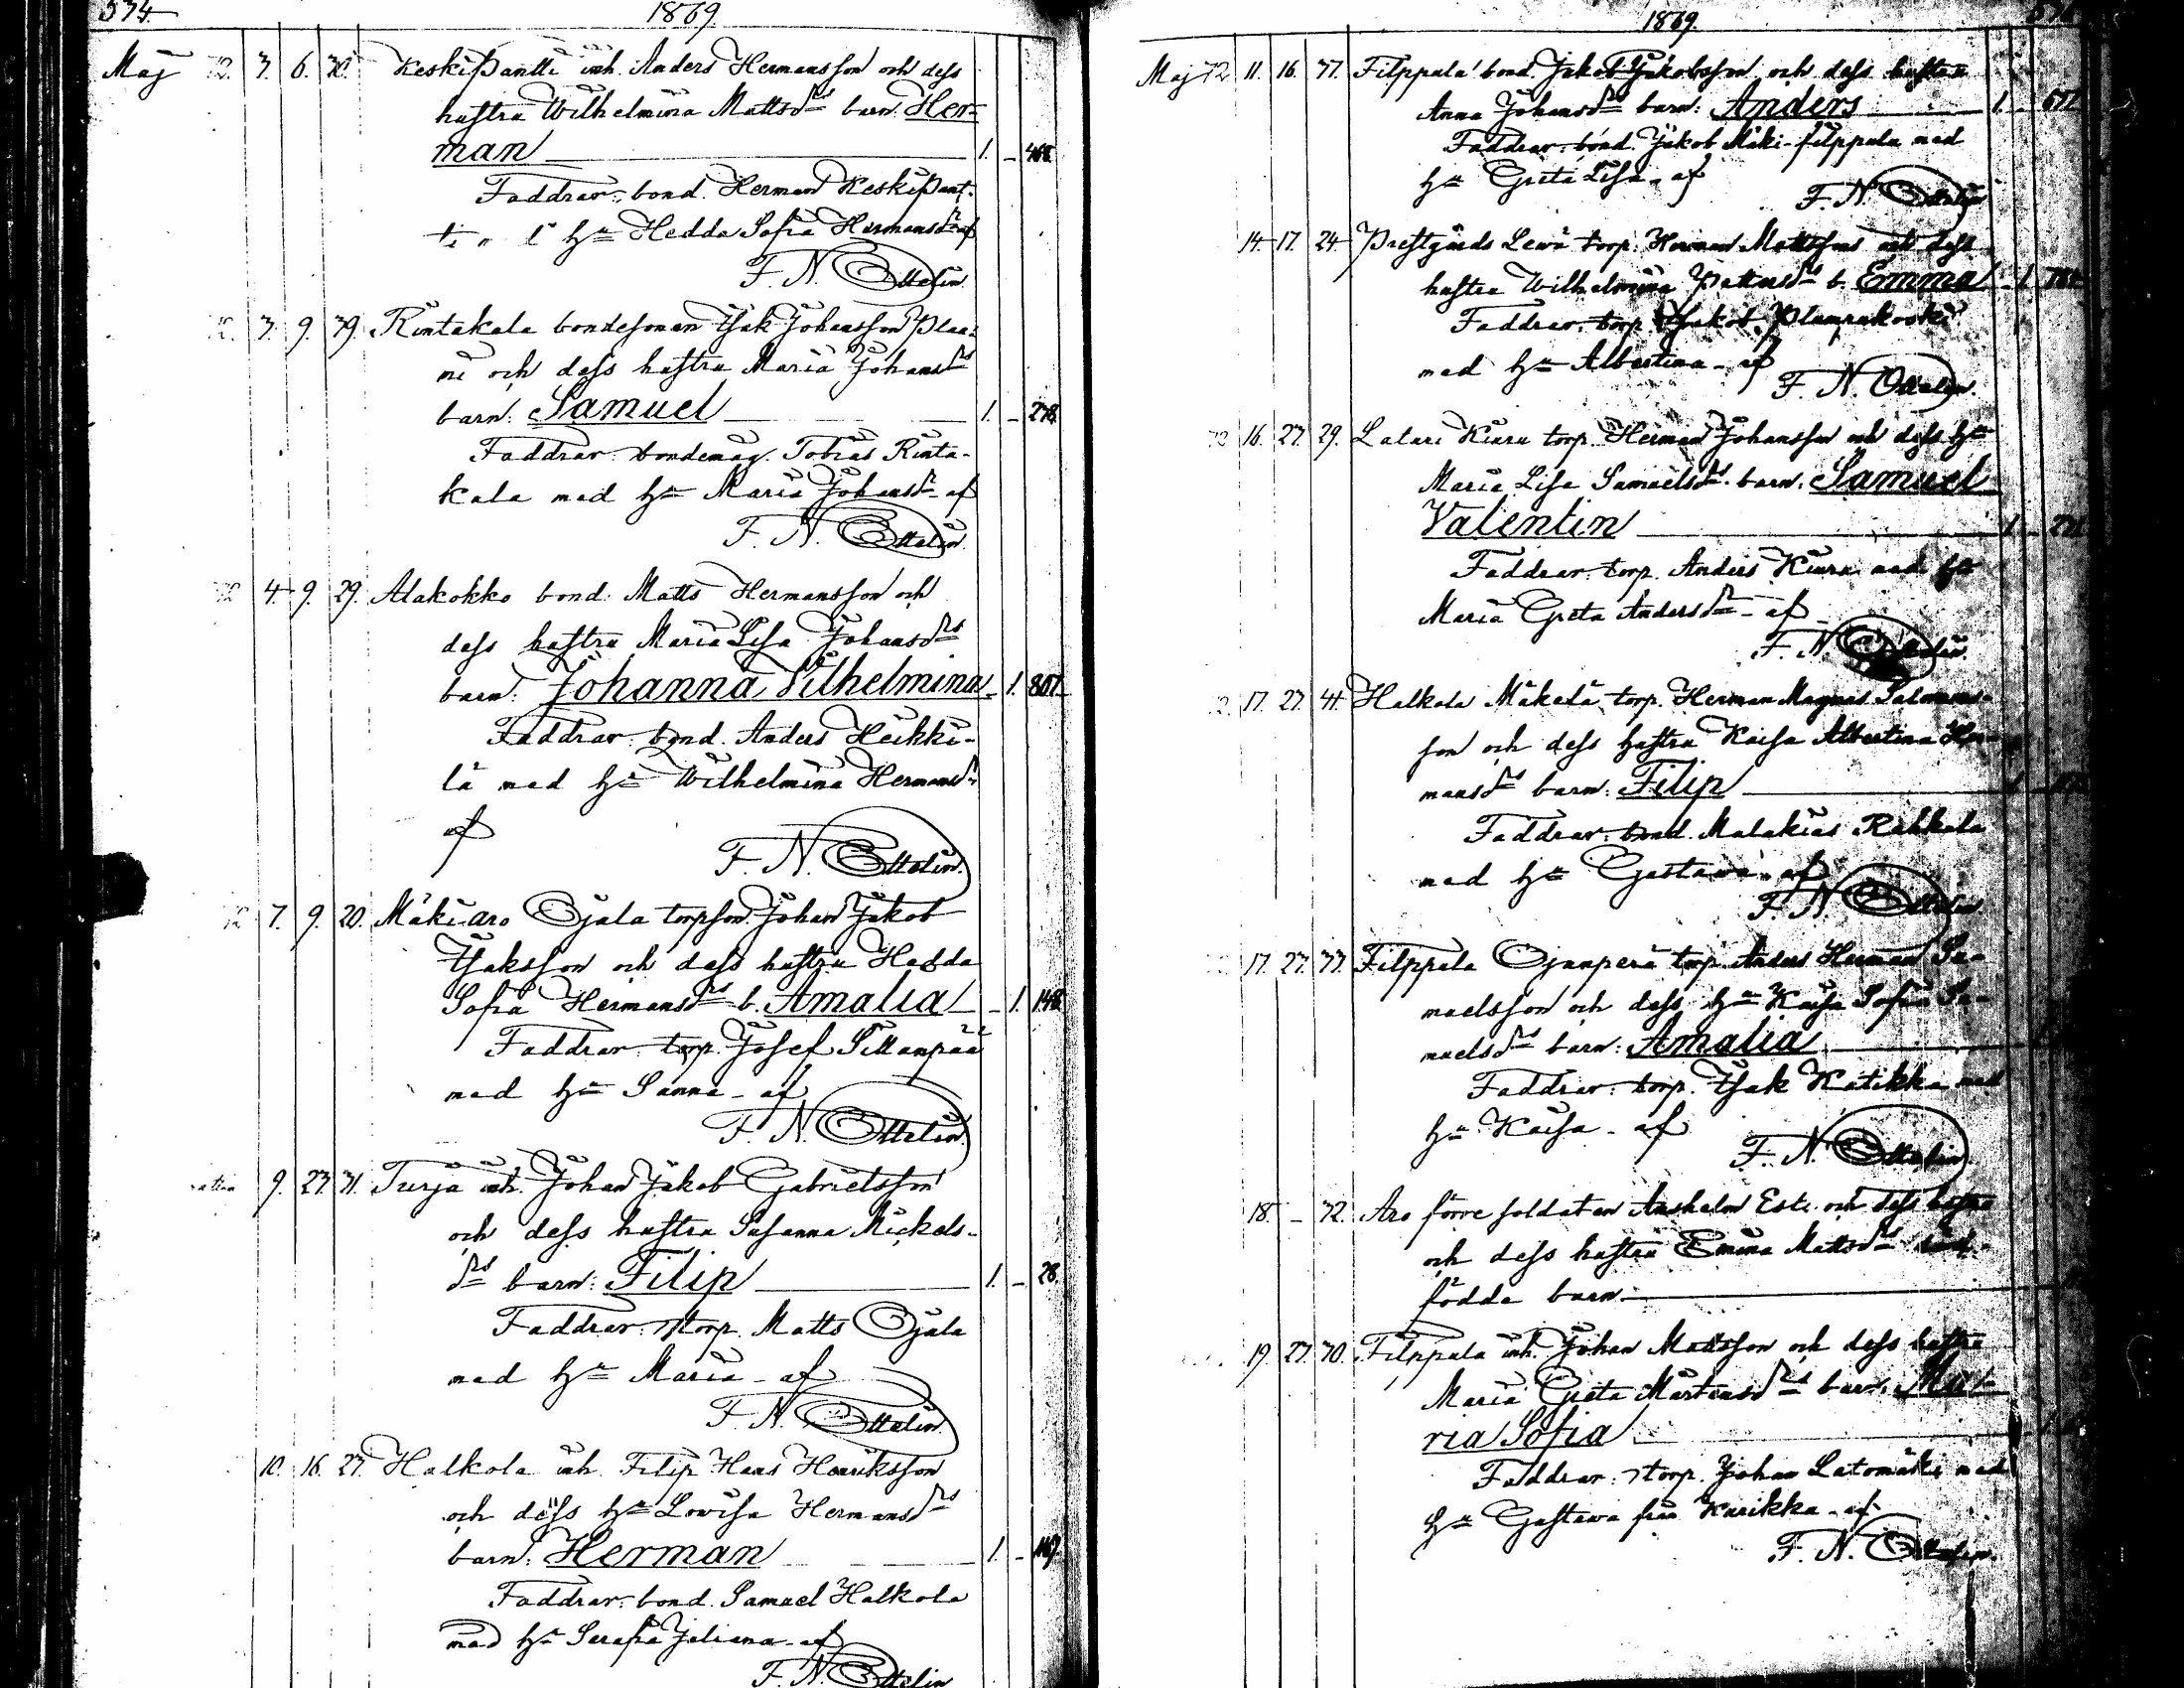 574
1869
Maj 72. 3. 6. 30. Keskipantti inh. Anders Hermansson och dess
hustru Wilhelmina Mattsdrs barn: Her=
man 1. - 468.
Faddrar: bond. Herman Keskipant-
ti hu Hedda Sofia Hermansdr af
F. N. Ottelin.
72. 3. 9. 39. Rintakala bondesonen Isak Johansson Plaa-
ni och dess hustru Maria Johansdrs
barn: Samuel 1. - 278.
Faddrar: bondemåg. Tobias Rinta-
kala med hu Maria Johansdr af
F. N. Ottelin.
72 4. 9. 29. Alakokko bond: Matts Hermansson och
dess hustru Maria Lisa Johansdrs
barn: Johanna Vilhelmina - 1. 801.
Faddrar: bond. Anders Heikki-
lä med hu Wilhelmina Hermansdr
af
F. N. Ottelin.
72 7. 9. 20. Mäkiaro Ojala torpson Johan Jakob
Isaksson och dess hustru Hedda
Sofia Hermansdrs b. Amalia - 1. 148.
Faddrar: torp. Josef Sillanpää
med hu Sanna - af
F. N. Ottelin.
9. 27. 31. Turja inh. Johan Jakob Gabrielsson
och dess hustru Susanna Mickels-
drs barn: Filip 1. - 28.
Faddrar: torp. Matts Ojala
med hu Maria - af
F. N. Ottelin.
10. 16. 27. Halkola inh. Filip Hans Henriksson
och dess hu Lovisa Hermansdrs
barn: Herman 1. -
Faddrar: bond. Samuel Halkola
med hu Serafia Juliana - af
F. N. Ottelin
1869.
Maj 72 11. 16. 37. Filppula bond. Jakob Jakobsson och dess hustru
Anna Johansdrs barn: Anders 1. -
Faddrar: bond. Jakob Mäki-filppula med
hu Greta Lisa - af
F. N. Ottelin
14. 17. 24. Prestgårds Lewä torp. Herman Mattsson och dess
hustru Wilhelmina Pettersdrs b. Emma - 1.
Faddrar: torp. Jakob
med hu Albertina - af
F. N. Ottelin.
72 16. 27. 29. Latari Kiuru torp. Herman Johansson och dess hu
Maria Lisa Samuelsdrs barn: Samuel
Valentin 1. -
Faddrar: torp. Anders Kiuru med hu
Maria Greta Andersdr - af
F. N. Ottelin.
17. 27. 41. Halkola Mäkelä torp. Herman Magnus Salomons-
son och dess hustru Kaisa Albertina Her-
mansdrs barn: Filip
Faddrar: bond. Malakias Rahkola
med hu Gustawa - af
F. N. Ottelin.
17. 27. 37. Filppula Ojanperä torp. Anders Herman Sa-
muelsson och dess hu Kaisa Sofia Sa-
muelsdrs barn: Amalia
Faddrar: torp. Isak Katikka med
hu Kaisa - af
F. N. Ottelin.
18. - 32. Aro förre soldaten Anshelm Este och dess hustru
och dess hustru Emma Mattsdrs
födda barn.
19. 27. 30. Filppula inh. Johan Mattsson och dess hustru
Maria Greta Mårtensdrs barn: Ma=
ria Sofia
Faddrar: torp. Johan Latomäki med
hu Gustawa från Karikka - af
F. N. Ottelin.